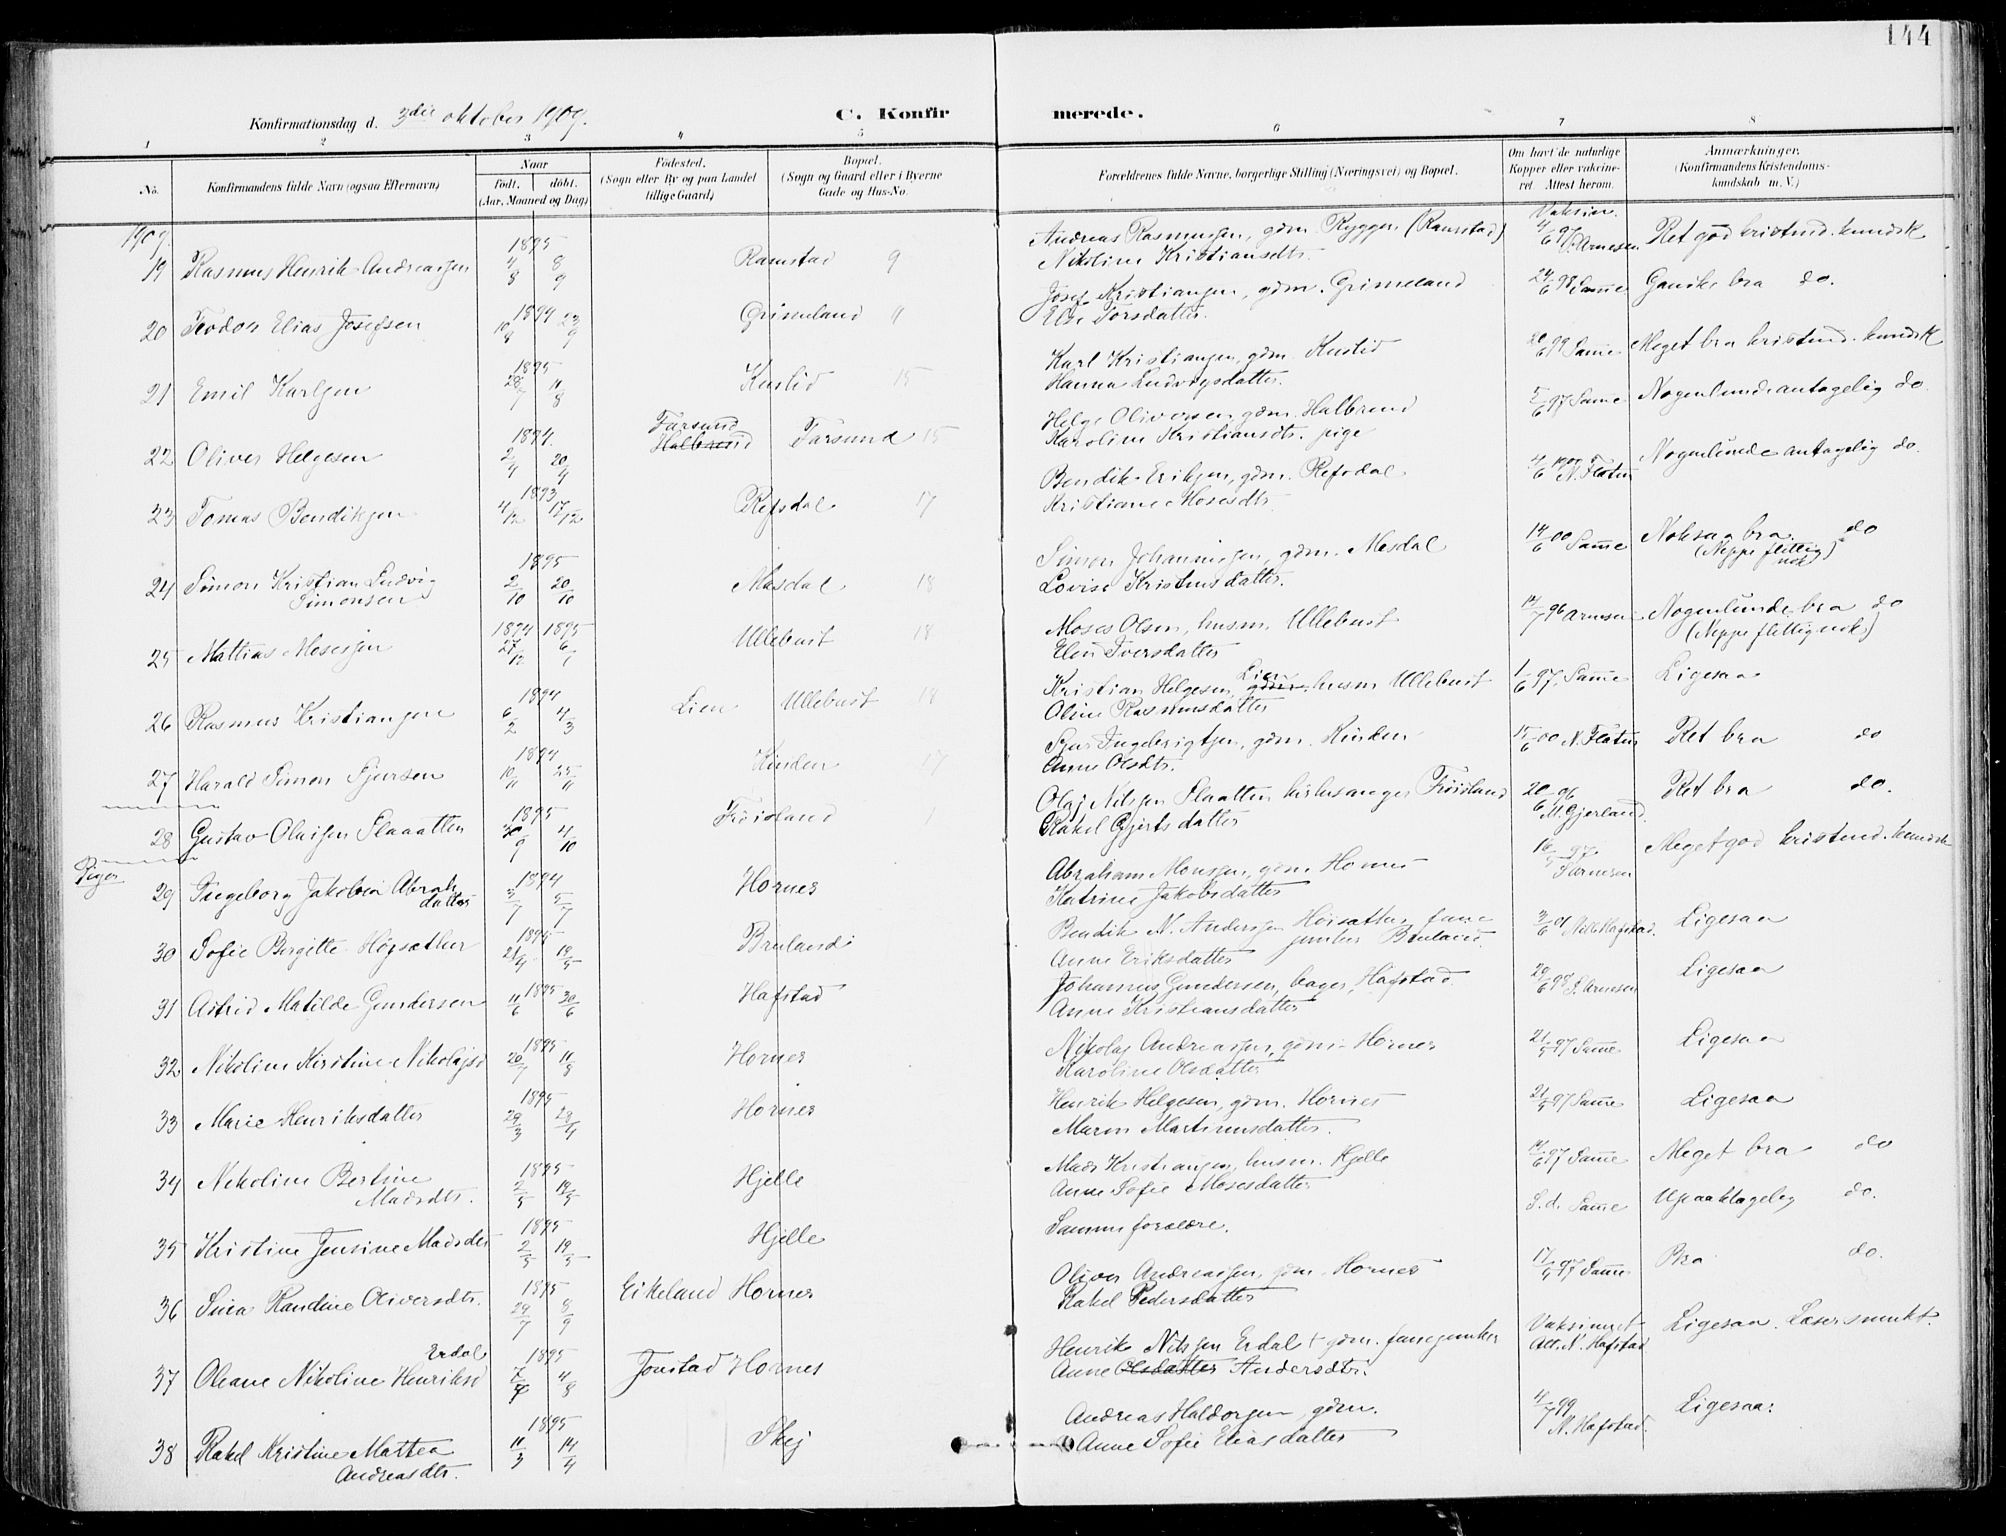 144
Konfirmationsdag d. 3die oktober 1909.
C. Konfirmerede.
1 2 3 4 5 6 7 8
No. Konfirmandens fulde Navn (ogsaa Efternavn) Naar født. døbt. (Aar, Maaned og Dag) Fødested. (Sogn eller By og paa Landet tillige Gaard) Bopæl. (Sogn og Gaard eller i Byerne Gade og Hus-No. Forældrenes fulde Navne, borgerlige Stilling (Næringsvei) og Bopæl. Om havt de naturlige Kopper eller vakcineret. Attest herom. Anmærkninger. (Konfirmandens Kristendomskundskab m. V.)
1909.
19 Rasmus Henrik Andreassen 1895 4/8 8/9 Ramstad 9 Andreas Rasmussen, gdm. Rygger (Ramstad) Vaksin. 4/6 97 Arnesen Ret god kristnd. kundsk
Nikoline Kristiansdtr.
20 Teodor Elias Josefsen 1894 10/9 23/9 Grimeland 11 Josef Kristiansen, gdm. Grimeland 24/6 98 Samme Ganske bra do.
Else Torsdatter
21 Emil Karlsen 1895 28/7 11/8 Kustid 15 Karl Kristiansen, gdm. Kustid 20/6 99 Samme Meget bra kristnd. kundsk
Hanna Ludvigsdatter.
22 Oliver Helgesen 1894. 2/4 20/4 Farsund Halbrend Farsund 15 Helge Oliversen gdm. Halbrend 5/6 97 Samme Nogenlunde antagelig do
Karoline Kristiansdtr. pige
23 Tomas Bendiksen 1893 4/12 17/12 Refsdal 17 Bendik Eriksen, gdm. Refsdal 4/6 1900 N. Flatin Nogenlunde antagelig do.
Kristiane Mosesdtr
24 Simon Kristian Ludvig Simonsen 1895 2/10 20/10 Masdal 18 Simon Johannessen, gdm. Masdal 14/6 00 Samme Noksaa bra do
(Neppe flittig nok)
Lovise Kristensdatter.
25 Mattias Mosessen 1894 27/12 1895 6/1 Ullebust 18 Moses Olsen, husm. Ullebust 14/7 96 Arnesen Nogenlunde bra do
(Neppe flittig nok)
Elen Iversdatter
26 Rasmus Kristiansen 1894 6/2 4/3 Lien Ullebust 18 Kristian Helgesen, Lien gdm. husm Ullebust 1/6 97. Samme Ligesaa
Oline Rasmusdatter
27 Harald Simon Sjursen 1894 10/11 25/11 Kinden 17 Sjur Ingebrigtsen, gdm. Kinden 15/6 00 N. Flatin Ret bra do
Anne Olsdtr.
28 Gustav Olaisen Slaatten 1895 30/9 4/10 Frøisland 1 Olaj Nilssen Slaatten kirkesanger Frøisland 20/6 96 M. Gjerland Ret bra do.
Rakel Gjertsdatter
Piger
29 Ingeborg Jakobia Abrah datter 1894 3/7 5/7 Hornes Abraham Monsen, gdm. Hornes 16/5 97 S. Arnesen Meget god kristnd. kundsk
Katrine Jakobsdatter
30 Sofie Birgitte Høisæther 1895 21/4 12/5 Bruland Bendik N. Anderssen Høisæther, fane junker Bruland. 3/6 01 Nils Hafstad. Ligesaa
Anne Eriksdatter
31 Astrid Matilde Gundersen 1895 11/6 30/6 Hafstad Johannes Gundersen, bager, Hafstad. 29/6 98 S. Arnesen Ligesaa
Anne Kristiansdatter
32 Nikoline Kirstine Nikolajsd 1895 20/7 11/8 Hornes Nikolaj Andreassen, gdm. Hornes 21/5 97 Samme Ligesaa
Karoline Olsdatter
33 Marie Henriksdatter 1895 29/3 28/4 Hornes Henrik Helgesen, gdm. Hornes 21/5 97 Samme Ligesaa
Maren Martinusdatter.
34 Nikoline Bertine Madsdtr. 1895 2/5 19/5 Hjelle Mads Kristiansen, husm. Hjelle 14/6 97 Samme Meget bra do
Anne Sofie Mosesdatter
35 Kristine Jensine Madsdtr 1895 2/5 19/5 Hjelle Samme forældre. S.d. Samme Upaaklagelig do.
36 Sina Randine Oliversdtr. 1895 29/7 8/9 Eikeland Hornes Oliver Andreassen, gdm. Hornes 17/5 97 Samme Bra do.
Rakel Pedersdatter
37 Oleane Nikoline Henriksd Erdal 1895 7/7 4/8 Jonstad Hornes Henrik Nilssen Erdal + gdm. fanejunker Vaksineret Att. N. Hafstad Ligesaa. Læser smukt.
Anne Olsdatter Andersdtr.
38 Rakel Kristine Mattea Andreasdtr. 1895 11/3 14/4 Skej Andreas Haldorsen, gdm. 4/7 99 N. Hafstad. Ligesaa.
Anne Sofie Eliasdatter